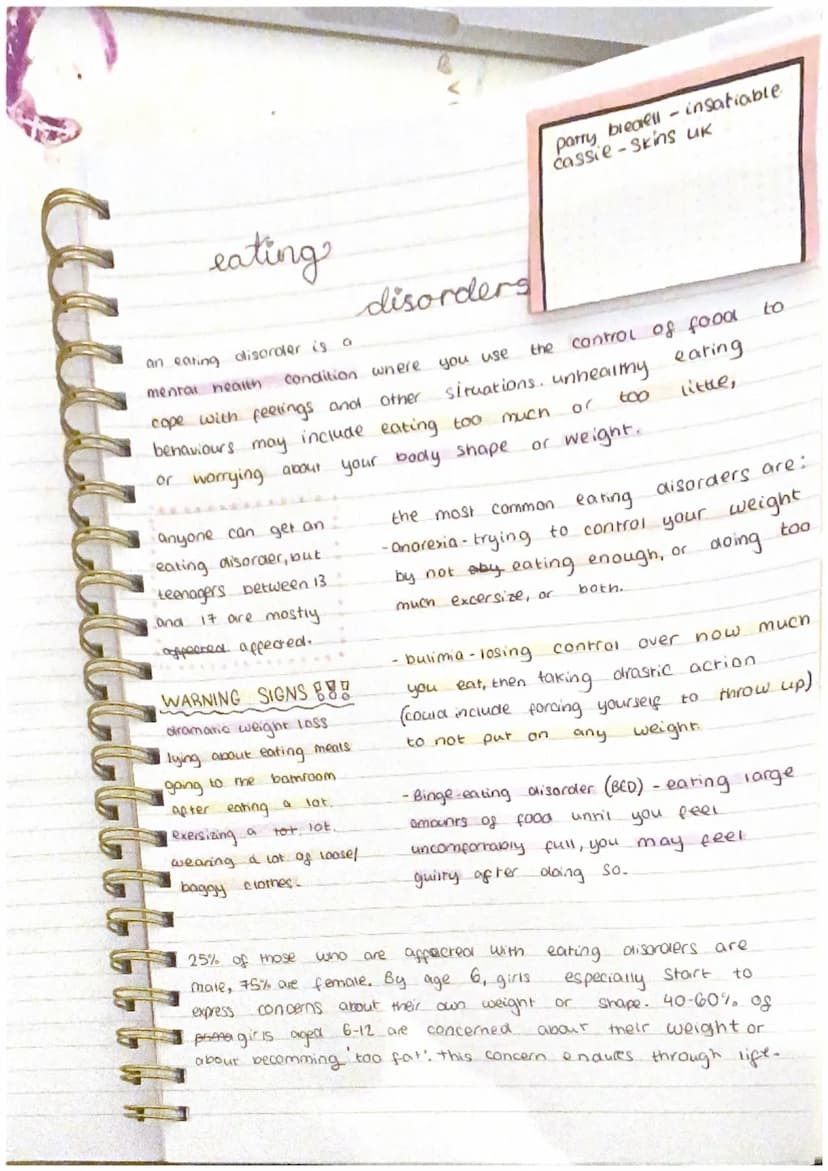 patty bledell - insatiable
cassie - skins uk
eating
disorders
an eating disorder is a
mental health condition where you use the control of food to
cope with feelings and other situations. unhealthy eating
behaviours may include eating too much or too little,
or worrying about your body shape or weight.
anyone can get an
eating disorder, but
teenagers between 13
and 17 are mostly
affected.
WARNING SIGNS !!!
dramatic weight loss
lying about eating meals
going to the bathroom
after eating a lot.
exersizing a lot.
wearing a lot of loose/
baggy clothes.
the most common eating disorders are:
-anorexia - trying to control your weight
by not eating enough, or doing too
much excersize, or both.
- bulimia - losing control over how much
you eat, then taking drastic action
(could include forcing yourself to throw up)
to not put on any weight.
- Binge-eating disorder (BED) - eating large
amounts of food until you feel
uncomfortably full, you may feel
guilty after doing so.
25% of those who are affected with eating disorders are
male, 75% are female. By age 6, girls especially start to
express concerns about their own weight or shape. 40-60% of
girls aged 6-12 are concerned about their weight or
about becomming 'too fat'. this concern endures through life.